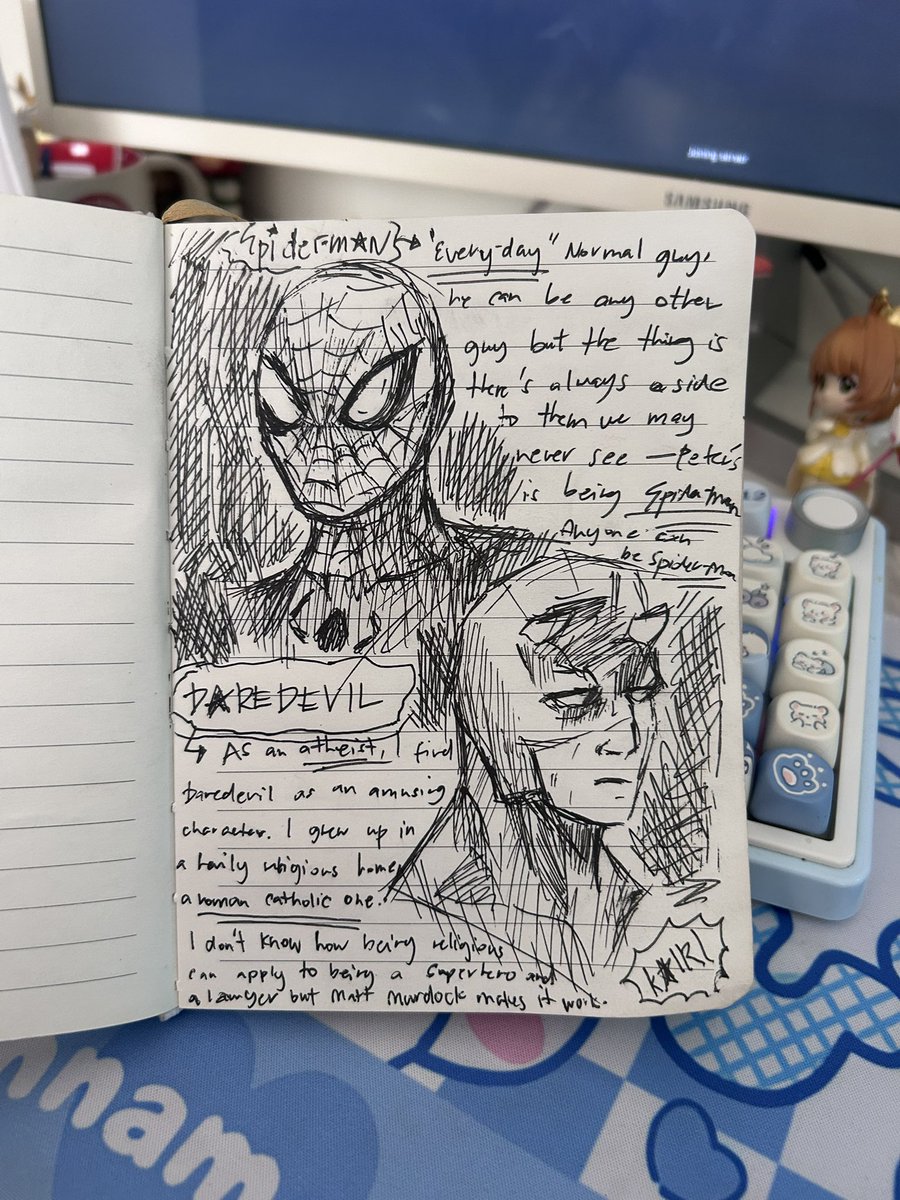 Joining server
SAMSUNG
{SpiderMAN} → "Every-day" Normal guy,
he can be any other
guy but the thing is
there's always a side
to them we may
never see — Peter's
is being Spiderman
Anyone can
be spider-man
DAREDEVIL
↳ As an atheist, I find
Daredevil as an amusing
character. I grew up in
a fairly religious home,
a roman catholic one.
I don't know how being religious
can apply to being a superhero and
a lawyer but Matt Murdock makes it work.
KAIRI
nnam